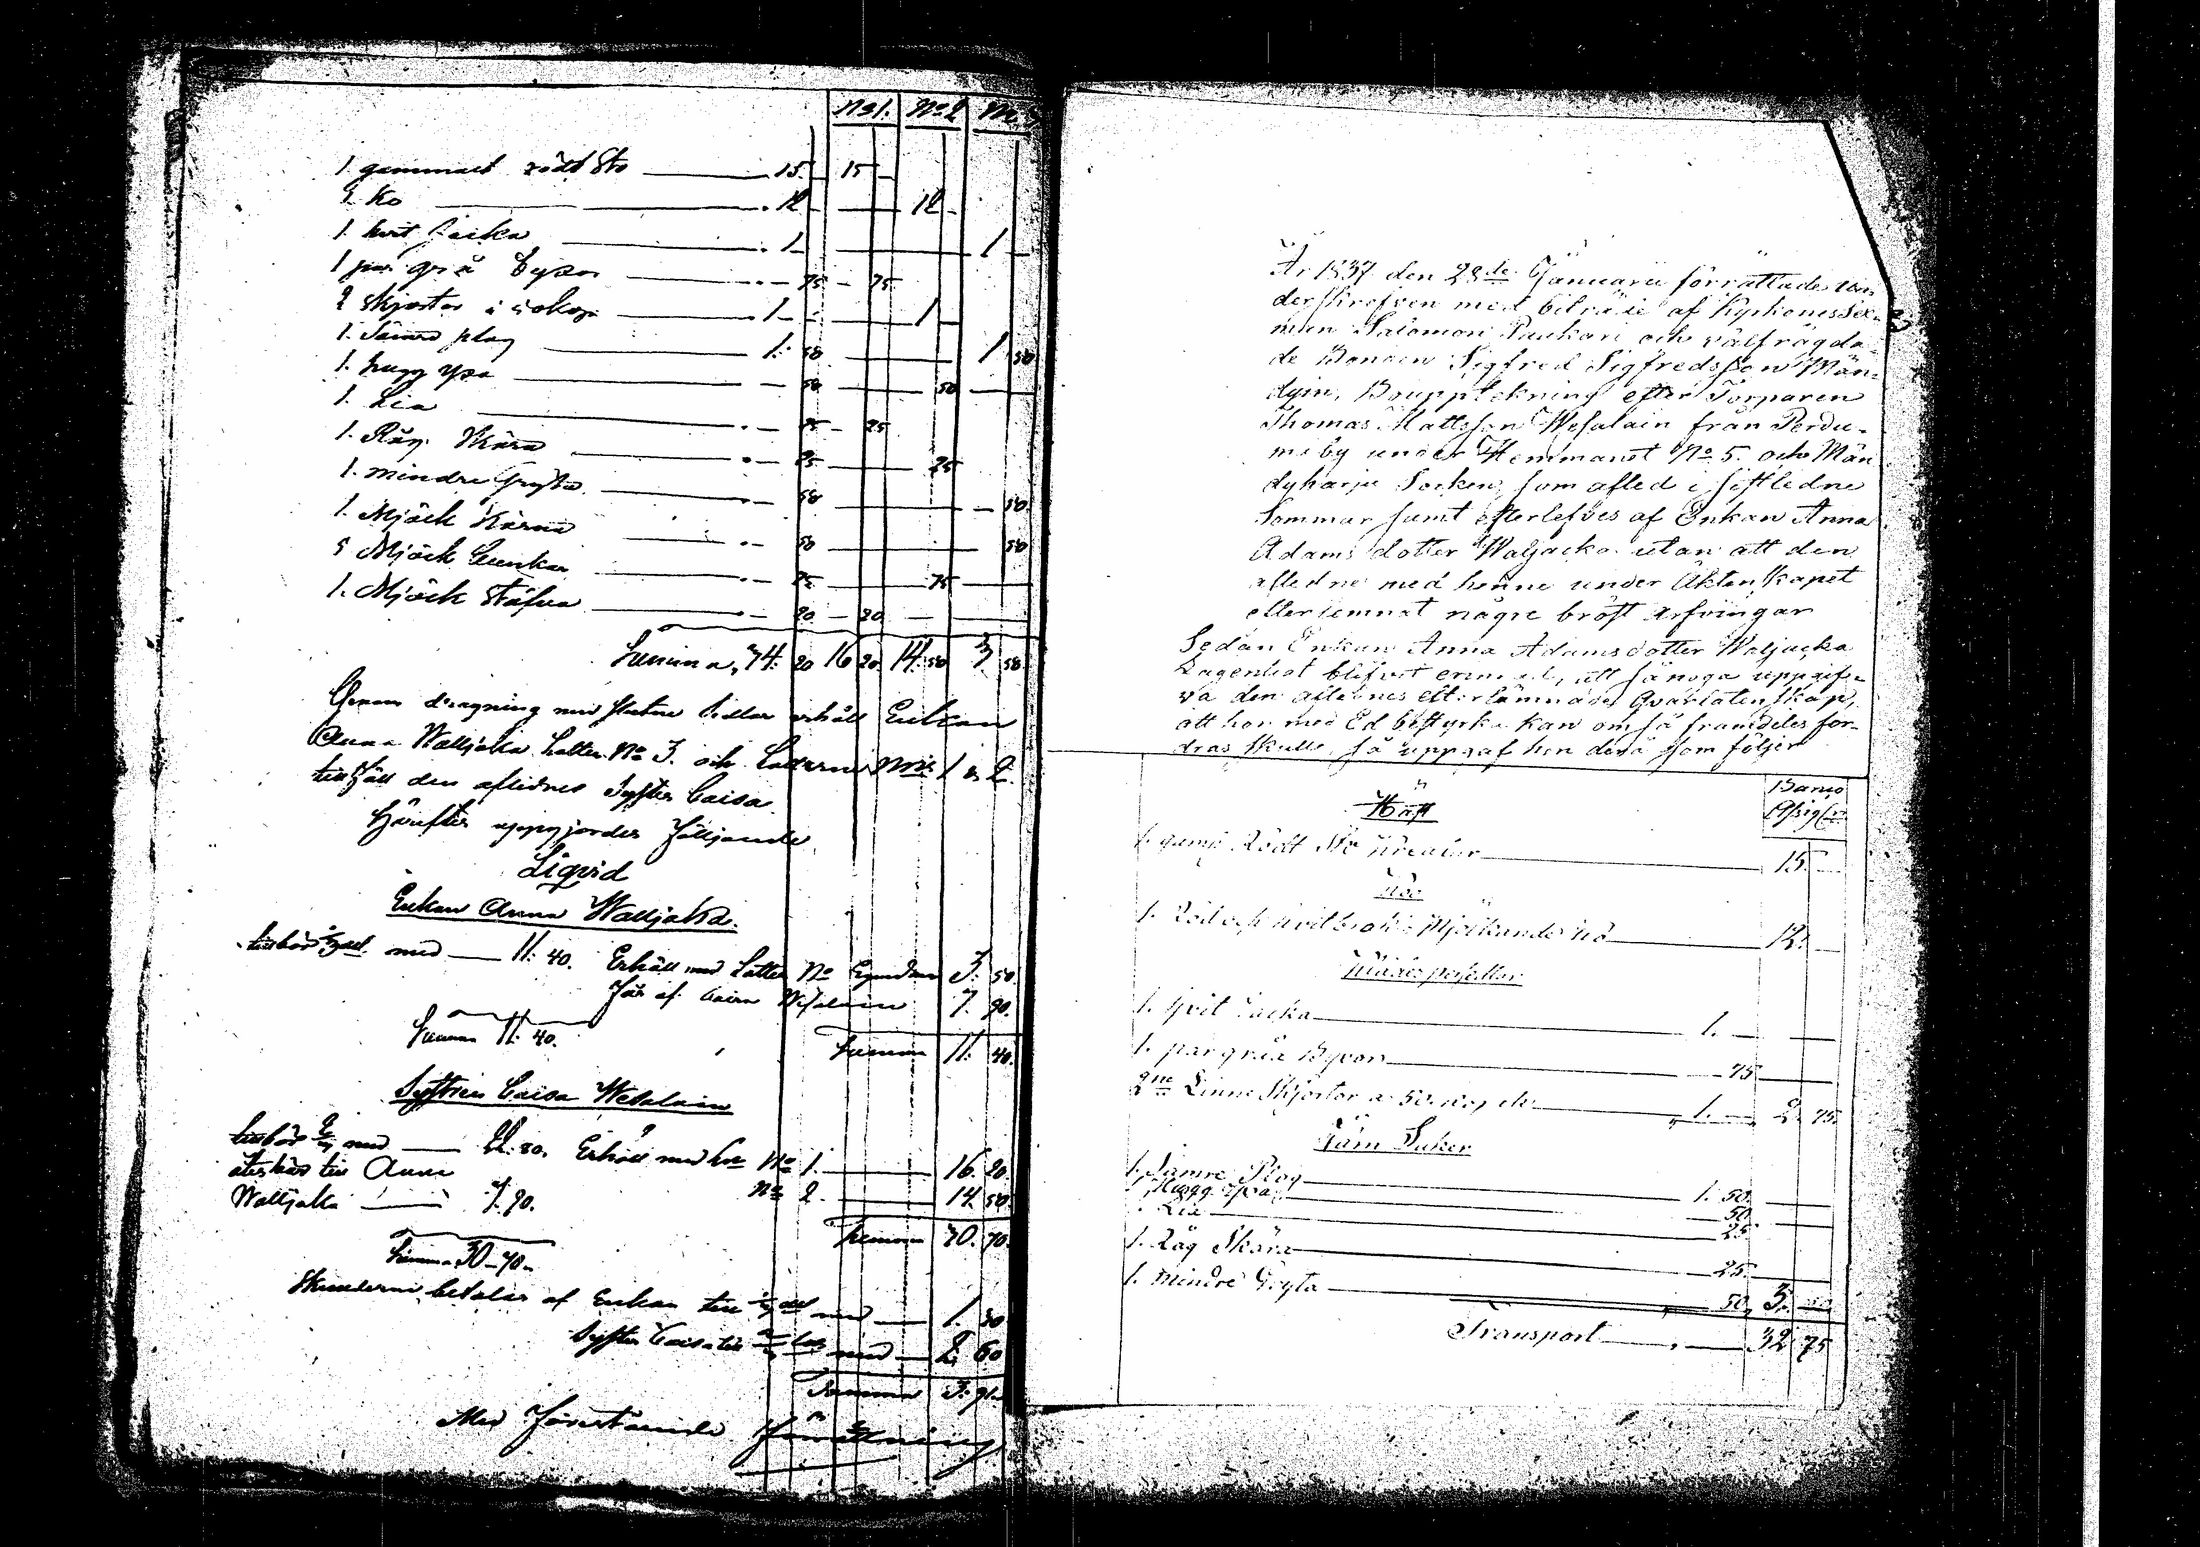 No 1. No 2 No 3
1. gammalt rödt Sto 15. — 15 —
1. Ko 12 — 12 —
1. hvit Jacka 1 — 1 —
1 par grå Byxor — 75 — 75
2 Skjortor 1 — 1 —
1. Jämre plog 1. 50 1 50
1. hugg yxa — 50 50
1. Lia — 25 — 25
1. Råg Skära — 25 25
1. mindre Gryta — 50 — 50
1. Mjölk Kärna — 50 50
5 Mjölk Bunkar — 75 — 75
1. Mjölk Stäfva — 20 — 20
Summa 34. 20 16 20 14. 50 3 50
Genom dragning med slutne Sedlar erhöll Enkan
Anna Walljakka Lotten No 3. och Lotterne Nris 1 & 2.
tillföll den aflidnes Syster Caisa
Härefter uppgjordes följande
Liqvid
Enkan Anna Walljakka.
tillkör 1/3 del med — 11. 40. Erhöll med Lotten No 3. 50
får af Caisa Wesalain 7. 90.
Summa 11. 40. Summa 11. 40.
Systren Caisa Wesalain
tillkör 2/3 med — 22. 80. Erhöll med No 1. 16. 20.
återbär till Anna No 2 14. 50.
Walljakka — 7. 90.
Summa 30. 70.
Summa 30. 70.
Skulderne betalas af Enkan till 1/3 del med — 1. 30
Syster Caisa till 2/3 med — 2. 60
Summa 3. 90
Med förestående förrättning
År 1837 den 28de Januarii förrättades un-
derskrefven med biträde af Kyrkones Sex-
man Salomon Paukari och välfrägda-
de Bonden Sigfred Sigfredsson Män-
dyin, Bouppteckning efter Torparen
Thomas Mattsson Wesalain från Perdu-
mä by under Hemmanet No 5. och Män
dyharju Socken, som afled i sistledne
Sommar samt efterlefves af Enkan Anna
Adams dotter Waljacka utan att den
aflidne med henne under Äktenskapet
efterlemnat någre bröst arfvingar
Sedan Enkan Anna Adamsdotter Waljacka
Lagenligt blifvit ermad, att så noga uppgif-
va den aflidnes efterlämnade Qvarlåtenskap,
att hon med Ed bestyrka kan om så framdeles for-
dras skulle, så uppgaf hon desã som följer
Banco
Assign.
Häst
1. gamt Rödt Sto Kreatur 15. —
Koo
1. Röd och hvit brokig Mjölkande Ko 12. —
Klädespersedlar
1. hvit Jacka 1. —
1. par gråa Byxor — 75
2ne Linne Skjortor a 50. kop. 1. — 2. 75.
Järn Saker
1. Jämre Plog 1. 50.
1. Hugg Yxa 50
1. Lia 25
1. Råg Skära 25
1. mindre Gryta 50, 3.
Transport 32 75